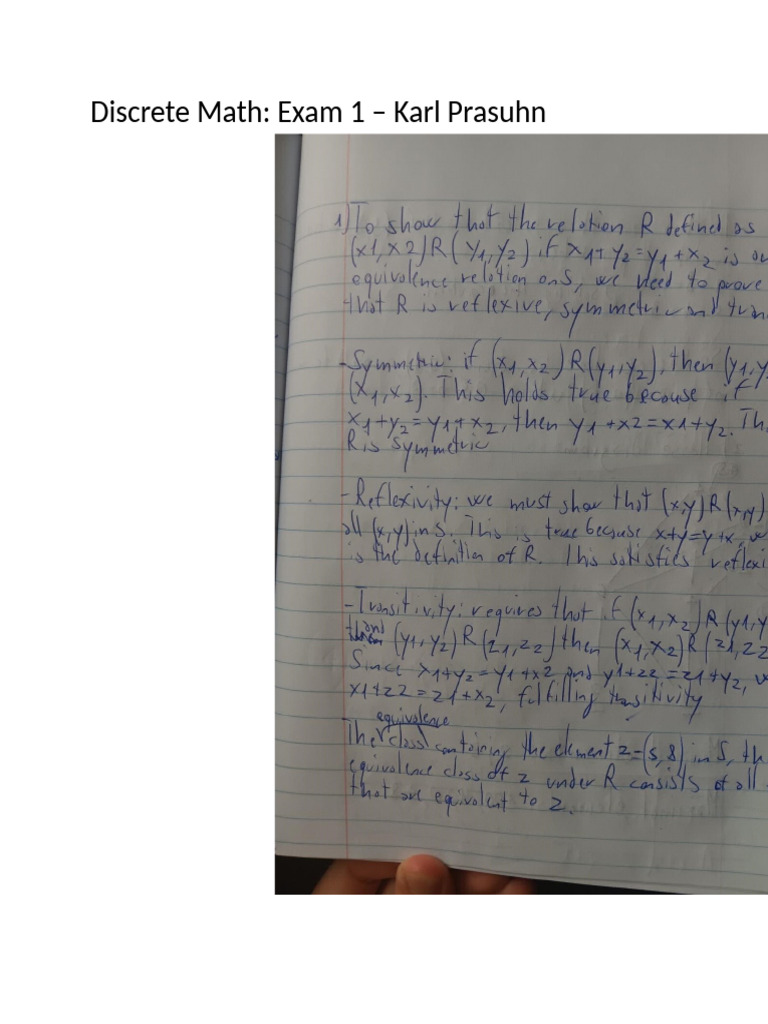 Discrete Math: Exam 1 – Karl Prasuhn
1) To show that the relation R defined as
(x1, x2) R ( y1, y2 ) if x1+ y2 = y1 + x2 is
equivalence relation on S, we need to prove
that R is reflexive, symmetric and
-Symmetric: if (x1, x2 ) R (y1, y2), then (y1,
(x1, x2). This holds true because if
x1+y2 = y1+x2, then y1 +x2 = x1+y2.
R is symmetric
-Reflexivity: we must show that (x,y) R (x,y)
all (x,y) in S. This is true because x+y=y+x,
is the definition of R. This satisfies
-Transitivity: requires that if (x1, x2) R (y1,
and (y1, y2) R (z1, z2) then (x1, x2) R (z1, z2
Since x1+y2 = y1+x2 and y1+z2 = z1+y2,
x1+z2 = z1+x2, fulfilling transitivity
equivalence
The class containing the element z=(5, 8) in S,
equivalence class of z under R consists of all
that are equivalent to z.